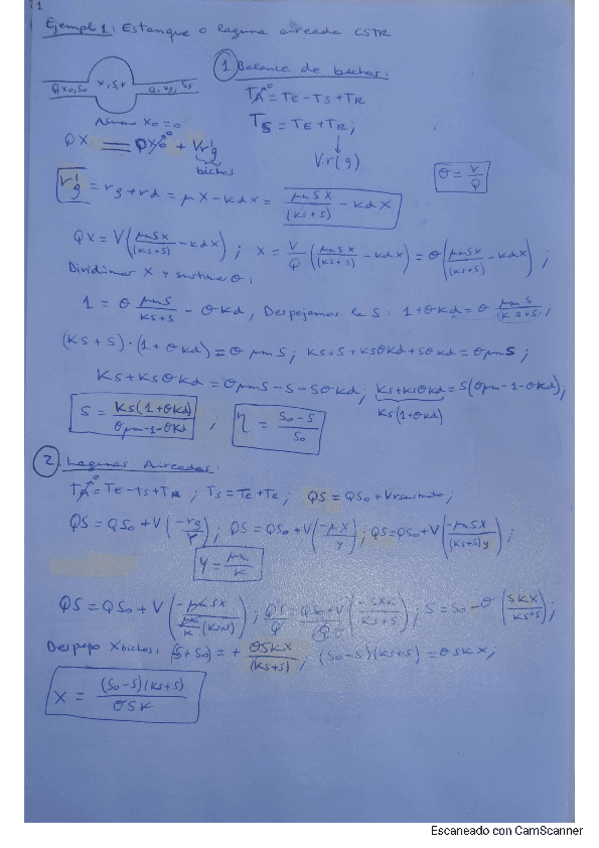 1
Ejemplo 1: Estanque o laguna aireada CSTR
① Balance de bichos:
Q X0, S0
X, S, V
Q, Xs, Ss
Asumo X0 = 0
TA→0 = TE - TS + TR
TS = TE + TR;
↓
Vr(g)
QX = QX0→0 + Vr'g
bichos
θ = V/Q
r'g = rg + rd = μX - KdX = μmSX/(Ks+S) - KdX
QX = V(μmSX/(Ks+S) - KdX); X = V/Q (μmSX/(Ks+S) - KdX) = θ(μmSX/(Ks+S) - KdX);
Dividimos X y sustituyo θ:
1 = θ μmS/(Ks+S) - θKd, Despejamos la S: 1+θKd = θ μmS/(Ks+S);
(Ks+S)·(1+θKd) = θμmS; Ks+S+KsθKd+SθKd = θμmS;
Ks+KsθKd = θμmS-S-SθKd; Ks+KsθKd = S(θμm-1-θKd);
Ks(1+θKd)
S = Ks(1+θKd)/(θμm-1-θKd); η = (S0-S)/S0
② Lagunas Aireadas:
TA→0 = TE - TS + TR; TS = TE + TR; QS = QS0 + V
QS = QS0 + V(-rg/Y); QS = QS0 + V(-μX/Y); QS = QS0 + V(-μmSX/(Ks+S)y);
Y = μm/K
QS = QS0 + V(-μmSX/(μm/K (Ks+S))); QS/Q = QS0+V/Q (-SXK/(Ks+S)); S = S0 - θ(SKX/(Ks+S));
Despejo Xbichos: (S+S0) = + θSKX/(Ks+S); (S0-S)(Ks+S) = θSKX;
X = (S0-S)(Ks+S)/θSK
Escaneado con CamScanner